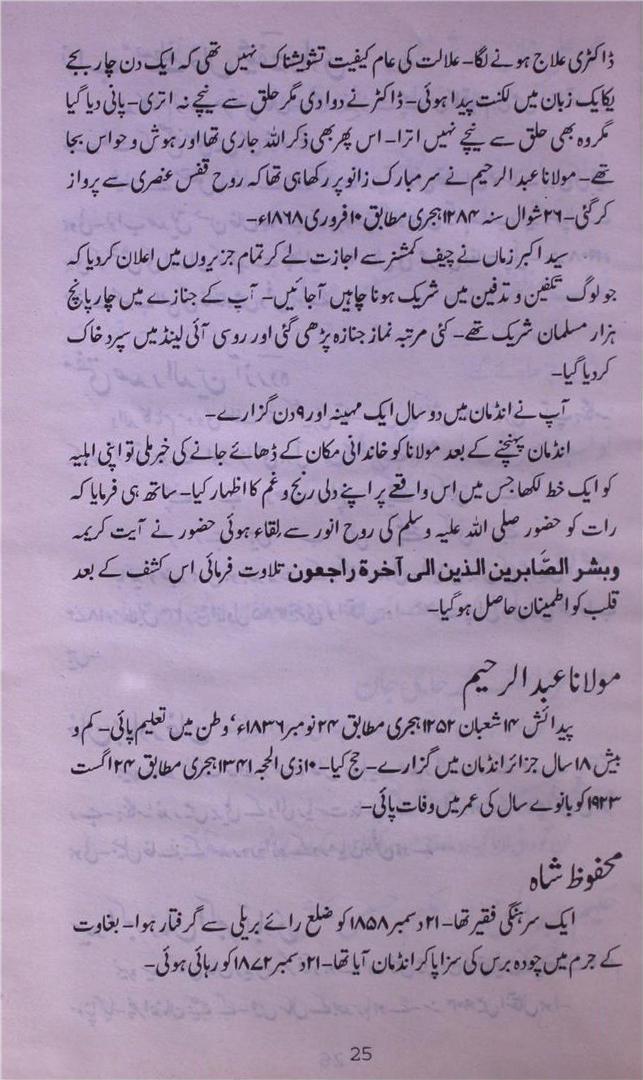 ڈاکٹری علاج ہونے لگا۔ علالت کی عام کیفیت تشویشناک نہیں تھی کہ ایک دن چار بجے
یکایک زبان میں لکنت پیدا ہوئی۔ ڈاکٹر نے دوا دی مگر حلق سے نیچے نہ اتری۔ پانی دیا گیا
مگر وہ بھی حلق سے نیچے نہیں اترا۔ اس پر بھی ذکر اللہ جاری تھا اور ہوش و حواس بجا
تھے۔ مولانا عبدالرحیم نے سر مبارک زانو پر رکھا ہی تھا کہ روح قفس عنصری سے پرواز
کر گئی۔ ۲۶ شوال سنہ ۱۲۸۴ ہجری مطابق ۱۰ فروری ۱۸۶۸ء۔
سید اکبر زماں نے چیف کمشنر سے اجازت لے کر تمام جزیروں میں اعلان کر دیا کہ
جو لوگ تکفین و تدفین میں شریک ہونا چاہیں آجائیں۔ آپ کے جنازے میں چار پانچ
ہزار مسلمان شریک تھے۔ کئی مرتبہ نماز جنازہ پڑھی گئی اور روسی آئی لینڈ میں سپرد خاک
کر دیا گیا۔
آپ نے انڈمان میں دو سال ایک مہینہ اور ۹ دن گزارے۔
انڈمان پہنچنے کے بعد مولانا کو خاندانی مکان کے ڈھائے جانے کی خبر ملی تو اپنی اہلیہ
کو ایک خط لکھا جس میں اس واقعے پر اپنے دلی رنج و غم کا اظہار کیا۔ ساتھ ہی فرمایا کہ
رات کو حضور صلی اللہ علیہ وسلم کی روح انور سے لقاء ہوئی حضور نے آیت کریمہ
وبشر الصَّابرین الذین الی آخرة راجعون تلاوت فرمائی اس کشف کے بعد
قلب کو اطمینان حاصل ہو گیا۔
مولانا عبدالرحیم
پیدائش ۱۴ شعبان ۱۲۵۲ ہجری مطابق ۲۴ نومبر ۱۸۳۶ء، وطن میں تعلیم پائی۔ کم و
بیش ۱۸ سال جزائر انڈمان میں گزارے۔ حج کیا۔ ۱۰ ذی الحجہ ۱۳۴۱ ہجری مطابق ۲۴ اگست
۱۹۲۳ کو بانوے سال کی عمر میں وفات پائی۔
محفوظ شاہ
ایک سرہنگی فقیر تھا۔ ۲۱ دسمبر ۱۸۵۸ کو ضلع رائے بریلی سے گرفتار ہوا۔ بغاوت
کے جرم میں چودہ برس کی سزا پا کر انڈمان آیا تھا۔ ۲۱ دسمبر ۱۸۷۲ کو رہائی ہوئی۔
25